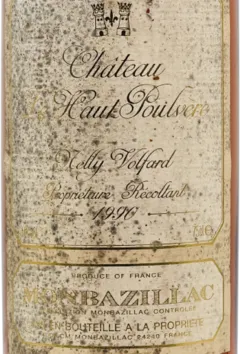 Château
Haut Poulvere
Nelly Volfard
Propriétaire Récoltant
1990
PRODUCE OF FRANCE
MONBAZILLAC
MONBAZILLAC CONTROLEE
EN BOUTEILLE A LA PROPRIETE
MONBAZILLAC 24240 FRANCE